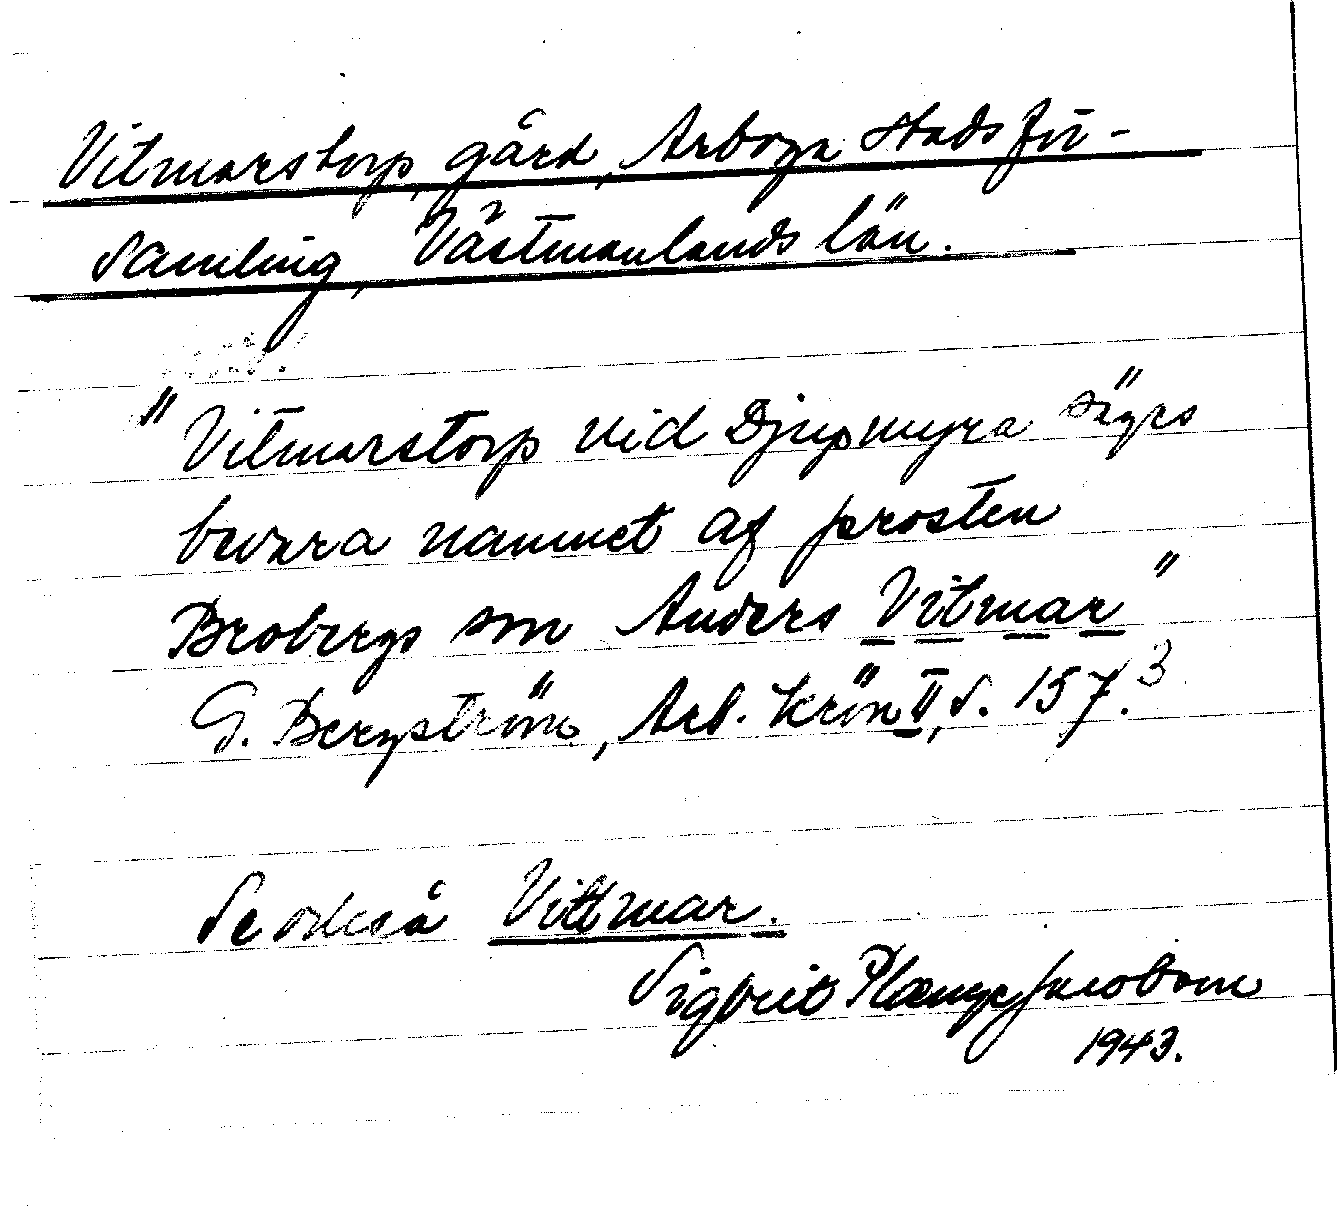 Vitmarstorp, gård, Arboga stadsför-
samling, Västmanlands län.
"Vitmarstorp vid Djupmyra säges
bevara namnet af prosten
Brobergs son Anders Vitmar"
G. Bergström, Arb. krön II, s. 157.3
Se också Vittmar.
Sigbrit Plænge Jacobson
1943.